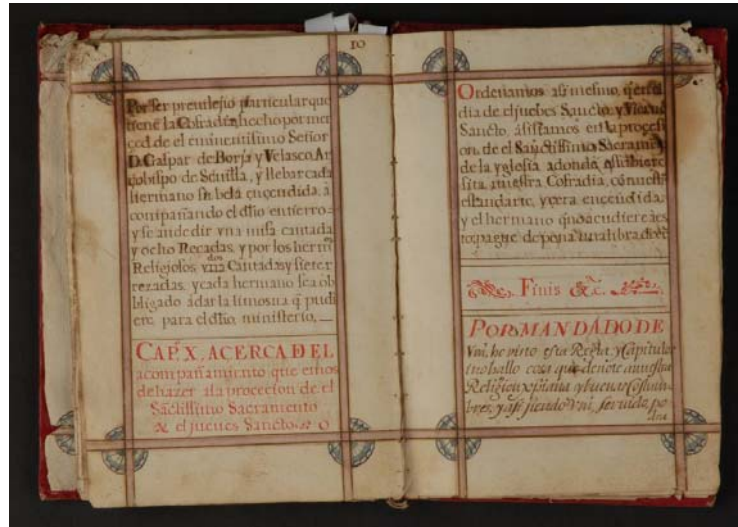 10
Por ser preuilejio particular que
tiene la Cofradia, hecho por mer
ced de el eminentisimo Señor
D. Gaspar de Borja y Velasco, Ar
çobispo de Seuilla, y llebar cada
hermano su bela encendida, a
conpañando el dho entierro
y se an de dir vna misa cantada
y ocho Recadas, y por los herm
Religiosos, dos Cantadas y siete r
rezadas, y cada hermano sea ob
bligado a dar la limosna q pudi
ere para el dho ministerio,
CAP. X. ACERCA DEL
acompañamiento que emos
de hazer a la procecion de el
Sãctissimo Sacramento
el jueues Sancto.
Ordenamos asi mesmo, q en el
dia de el juebes Sancto, y Viernes
Sancto, asistamos en la procesi
on, de el Sanctissimo Sacramẽ
de la yglesia adonde estubiere
sita nuestra Cofradia, con nuestro
estandarte, y cera encendida,
y el hermano q no acudiere a es
to, pague de pena una libra de
Finis &c.
POR MANDADO DE
Vm, he visto esta Regla, y Capitulos
i no hallo cosa que denote a nuestra
Religion xpiana y buenas Costum
bres, y asi siendo Vm, seruido, po
dra